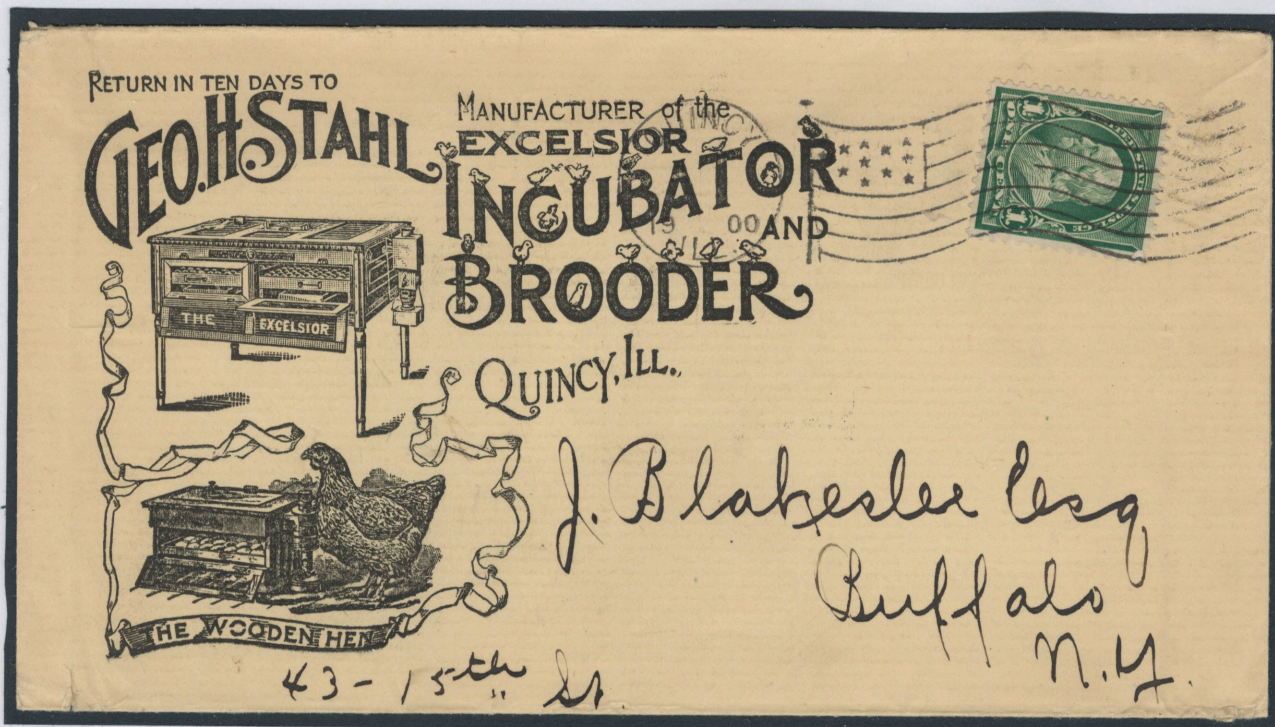 RETURN IN TEN DAYS TO
GEO. H. STAHL
MANUFACTURER of the
EXCELSIOR
INCUBATOR
AND
BROODER
QUINCY, ILL.
THE EXCELSIOR
THE WOODEN HEN
QUINCY
19 00
ILL
J. Blakeslee Esq
Buffalo
N.Y.
43 - 15th St